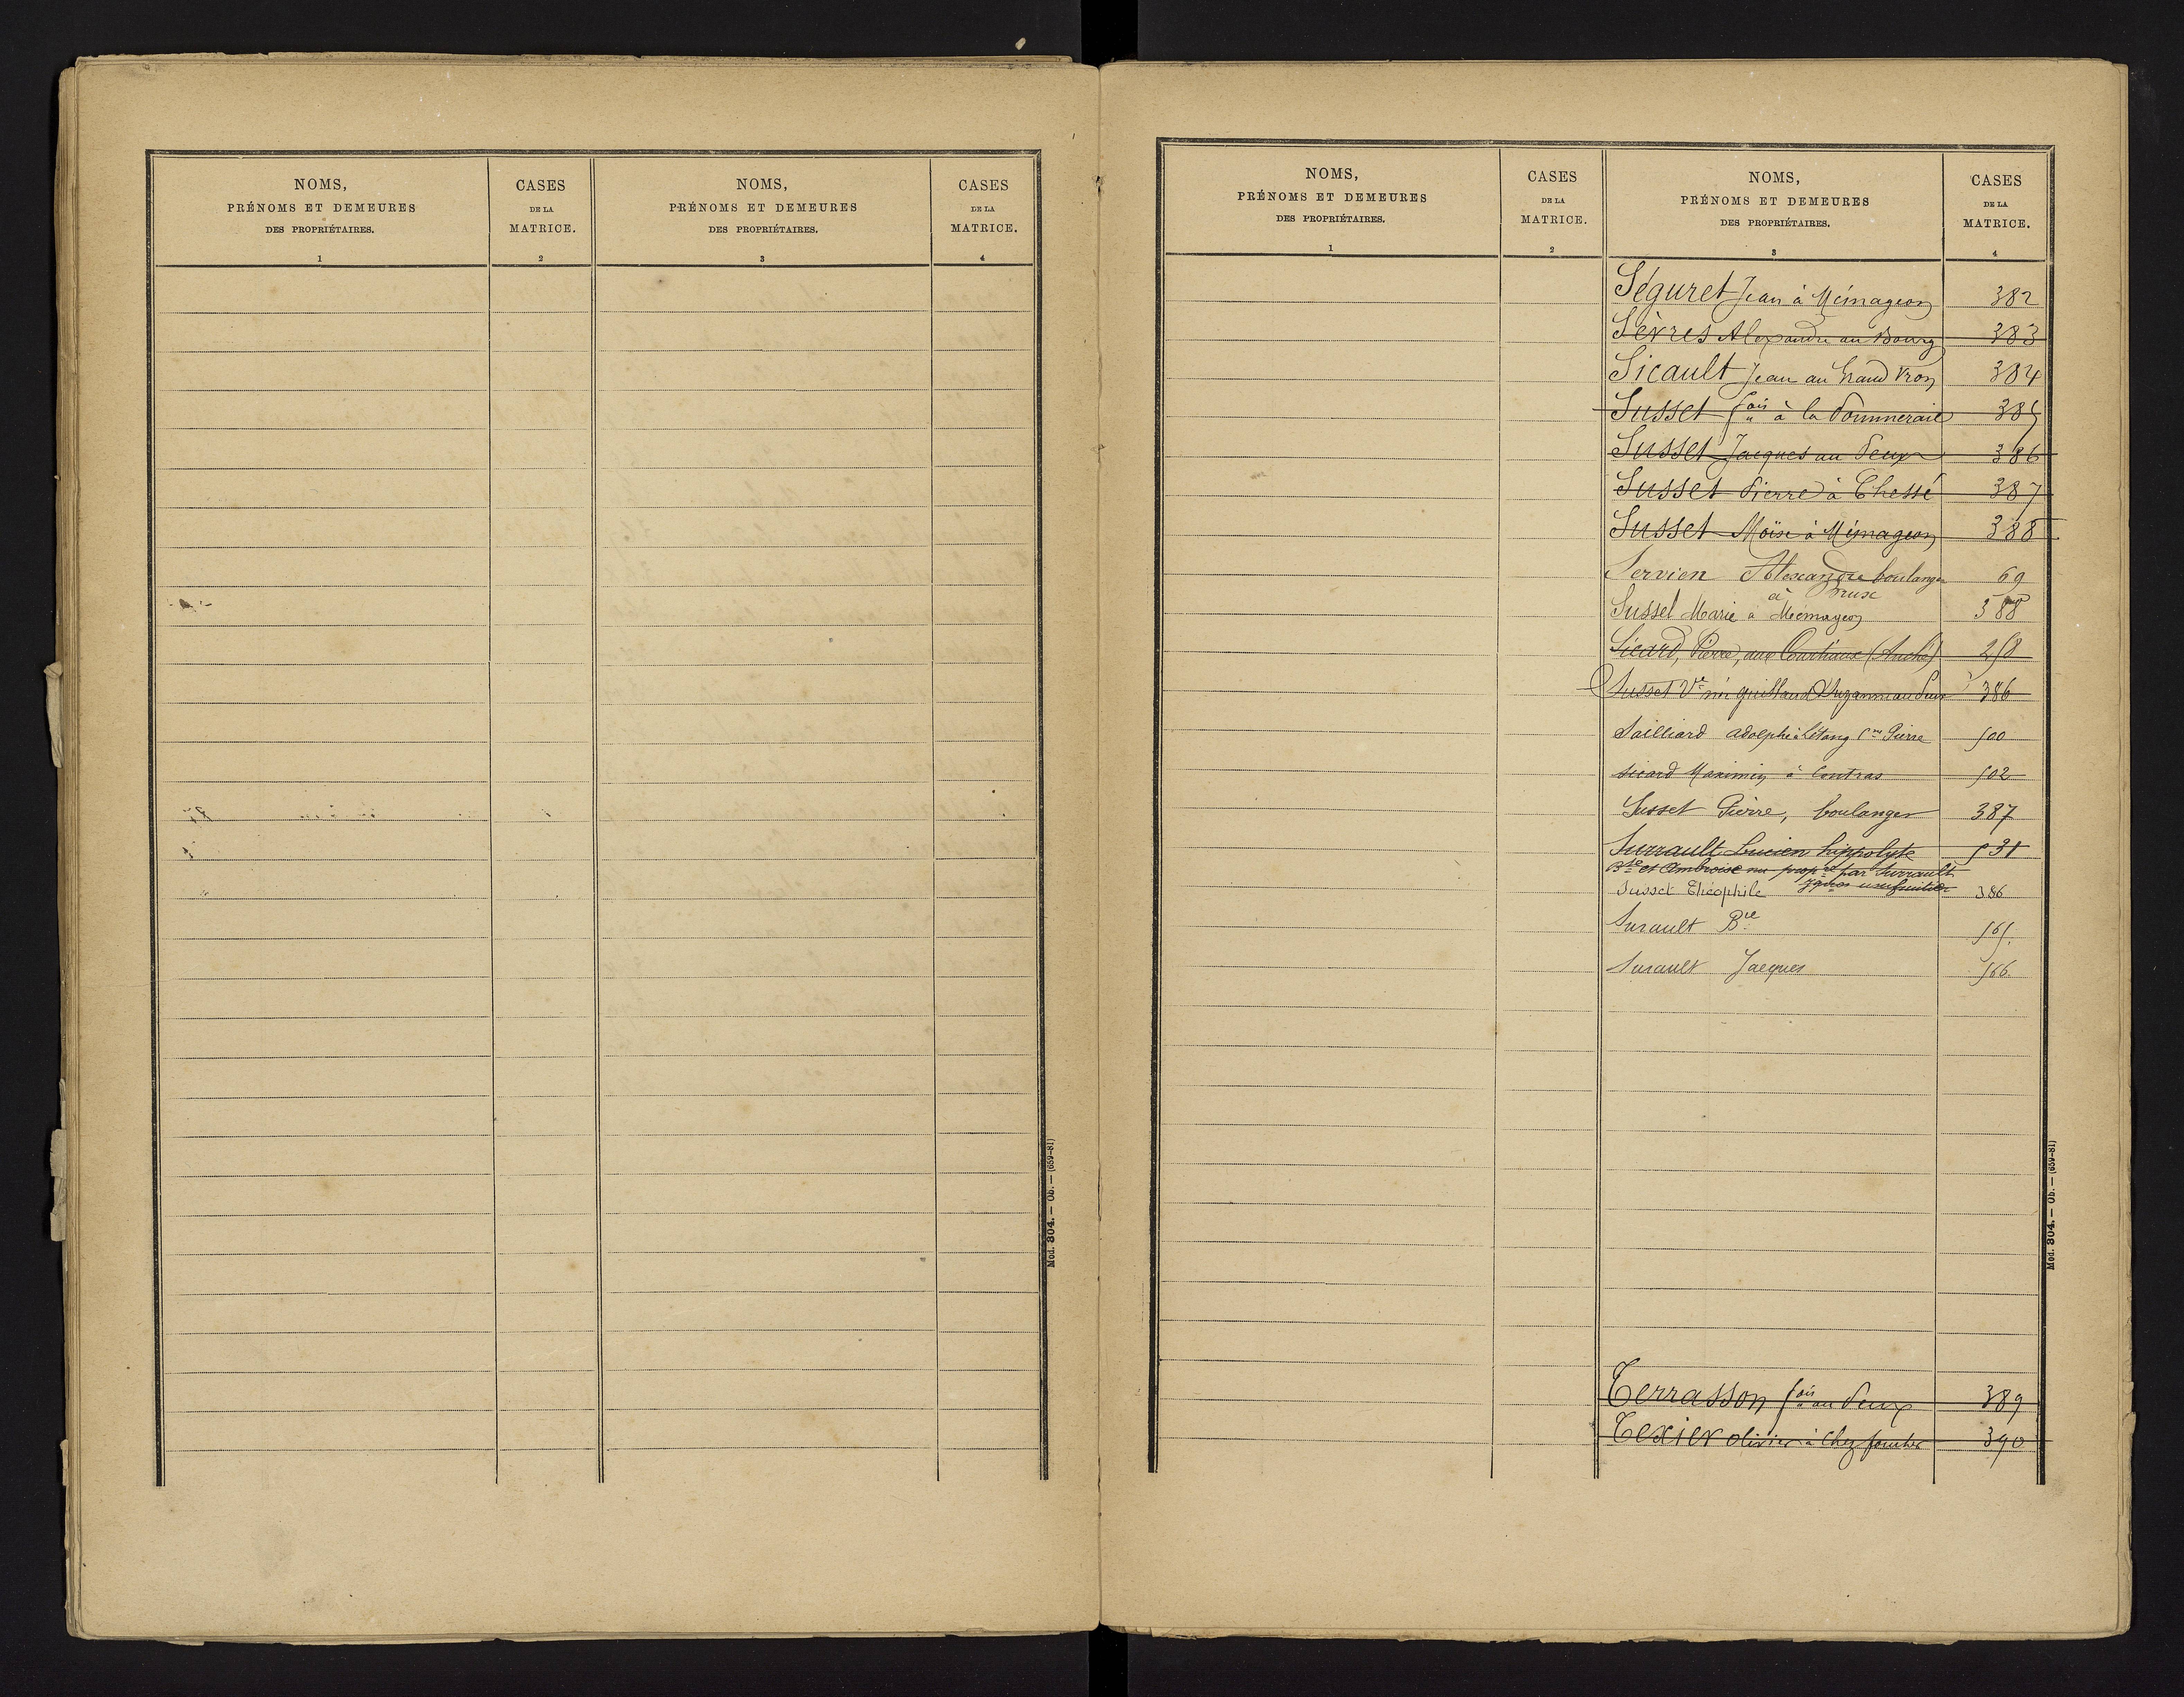 NOMS,
PRÉNOMS ET DEMEURES
DES PROPRIÉTAIRES.
1
CASES
DE LA
MATRICE.
2
NOMS,
PRÉNOMS ET DEMEURES
DES PROPRIÉTAIRES.
3
CASES
DE LA
MATRICE.
4
Mod. 304. — Ob. — (659-81)
NOMS,
PRÉNOMS ET DEMEURES
DES PROPRIÉTAIRES.
1
CASES
DE LA
MATRICE.
2
NOMS,
PRÉNOMS ET DEMEURES
DES PROPRIÉTAIRES.
3
CASES
DE LA
MATRICE.
4
Séguret Jean à Mémageon 382
Sèvres Alexandre au Bourg 383
Sicault Jean au Grand Vron 384
Susset fois à la Pommeraie 385
Susset Jacques au Peux 386
Susset Pierre à Chessé 387
Susset Moïse à Mémageon 388
Servien Alexandre boulanger 69
à
Susset Marie à Mémageon 388
Sicard, Pierre, aux Courtiaux (Anché) 258
Susset Ve née Guillaud Suzanne au Peux 386
Sailliard adolphe à l'étang Cne Pierre 500
Sicard Maximin à Contras 502
Susset Pierre, boulanger 387
Surrault Lucien hippolyte 531
Bte et Ambroise nu propre par Surrault
Jques usufruitier
Susset Théophile 386
Surault Bte 565
Surault Jacques 566
Terrasson fois au Peux 389
Texier olivier à Chez foucher 390
Mod. 304. — Ob. — (659-81)